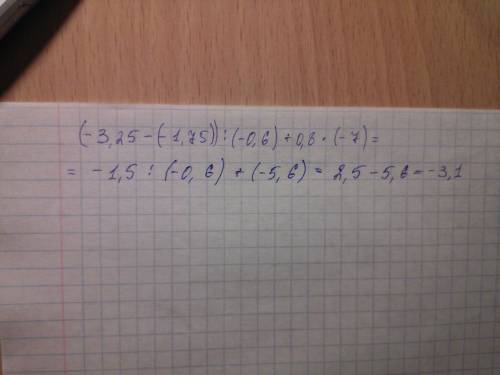 (-3,25-(-1,75)):(-0,6)+0,8·(-7)=
= -1,5:(-0,6)+(-5,6)=2,5-5,6=-3,1